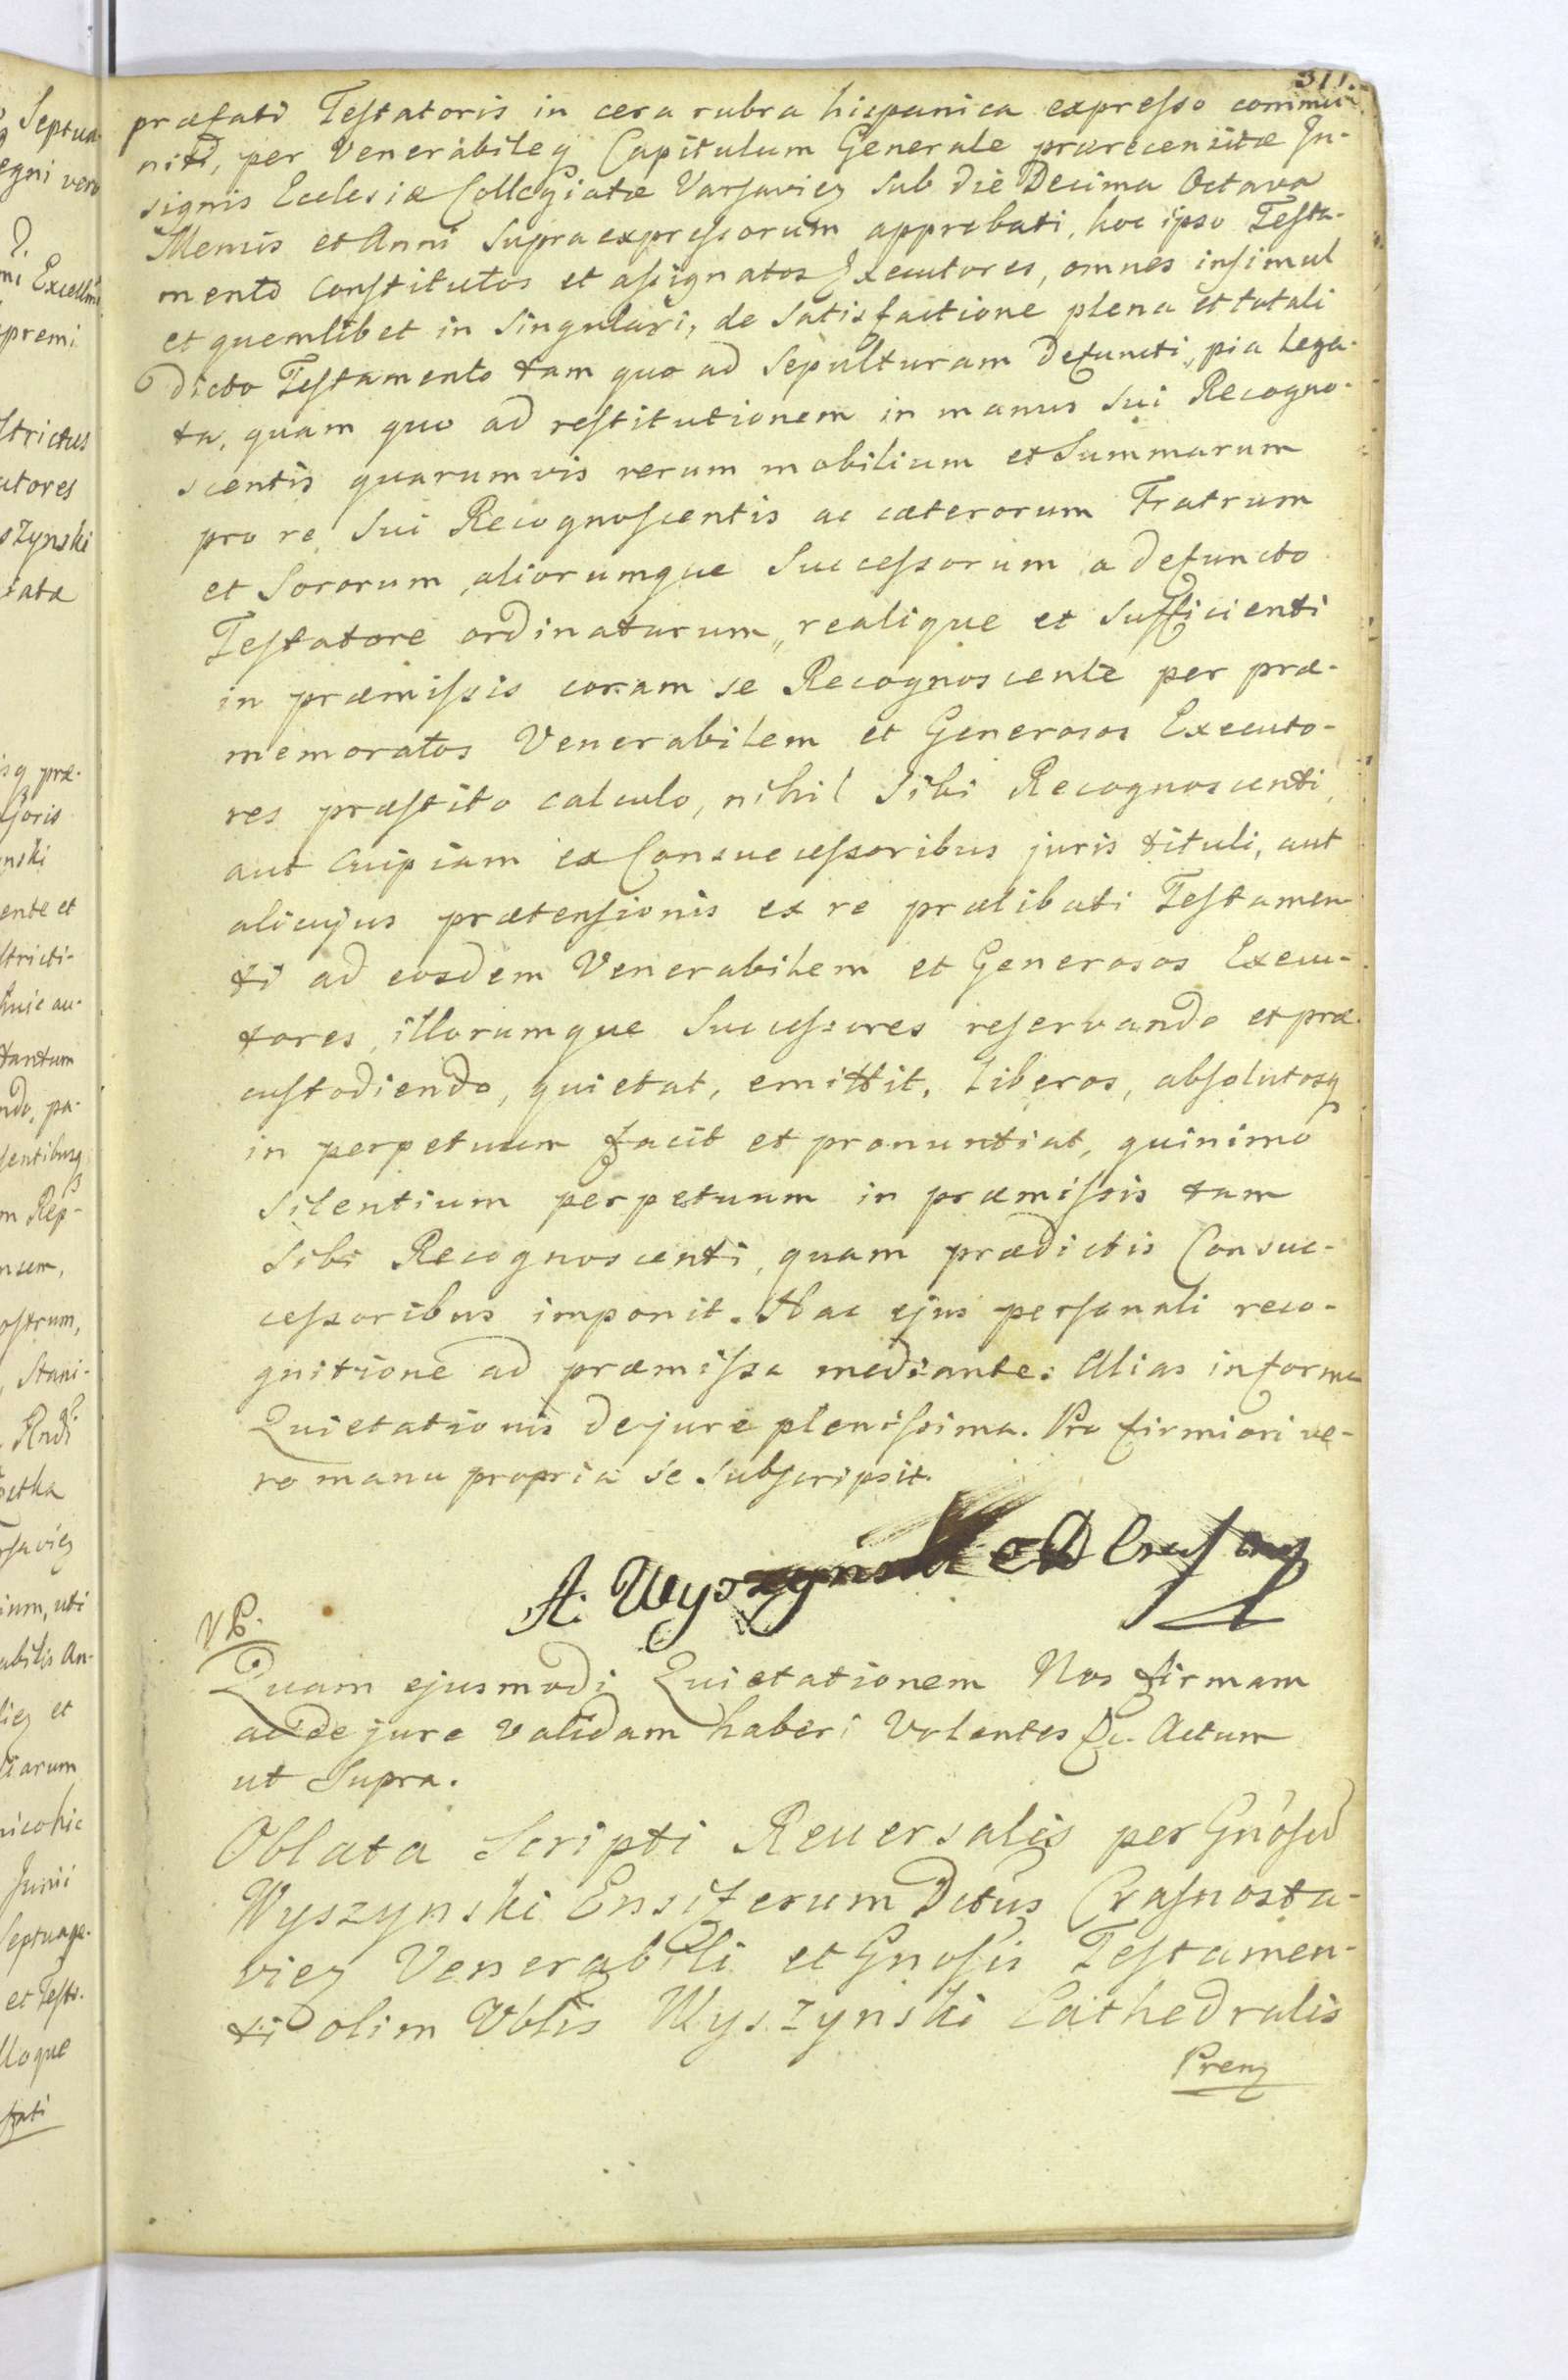 311.
præfati Testatoris in cera rubra hispanica expresso commu-
niti, per Venerabileꝫ Capitulum Generale præcensitæ In-
signis Ecclesiæ Collegiatæ Varsavieꝫ sub die Decima Octava
Mensis et Anni supraexpressorum approbati, hoc ipso Testa-
mento constitutos et assignatos Executores, omnes insimul
et quemlibet in singulari, de satisfactione plena et totali
dicto Testamento tam quo ad Sepulturam Defuncti, pia Lega-
ta, quam quo ad restitutionem in manus sui Recogno-
scentis quarumvis rerum mobilium et Summarum
pro re sui Recognoscentis ac cæterorum Fratrum
et Sororum, aliorumque Successorum a defuncto
Testatore ordinatarum, realique et sufficienti
in præmissis coram se Recognoscente per præ-
memoratos Venerabilem et Generosos Executo-
res præstito calculo, nihil sibi Recognoscenti,
aut cuipiam ex Consuccessoribus juris tituli, aut
alicujus prætensionis ex re prælibati Testamen
ti ad eosdem Venerabilem et Generosos Execu-
tores, illorumque Successores reservando et præ-
custodiendo, quietat, emittit, liberos, absolutosq
in perpetuum facit et pronuntiat, quinimo
silentium perpetuum in præmissis tam
sibi Recognoscenti, quam prædictis Consuc-
cessoribus imponit. Hac ejus personali reco-
gnitione ad præmissa mediante. Alias in forma
Quietationis de jure plenissima. Pro firmiori ve-
ro manu propria se subscripsit.
A. Wyszynski
Quam ejusmodi Quietationem Nos firmam
ac de jure validam haberi Volentes &c. Actum
ut Supra.
Oblata Scripti Reversalis per Gnosu
Wyszynski Ensiferum Dctus Crasnosta-
vieꝫ Venerabili et Gnosis Testamen-
ti olim Vblis Wyszynski Cathedralis
Preꝫ